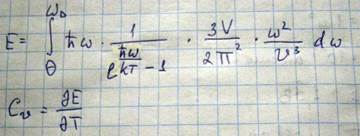 E = ∫_Θ^{ω_D} ħω · 1/(e^{ħω/kT} - 1) · 3V/(2π²) · ω²/v³ dω
C_v = ∂E/∂T